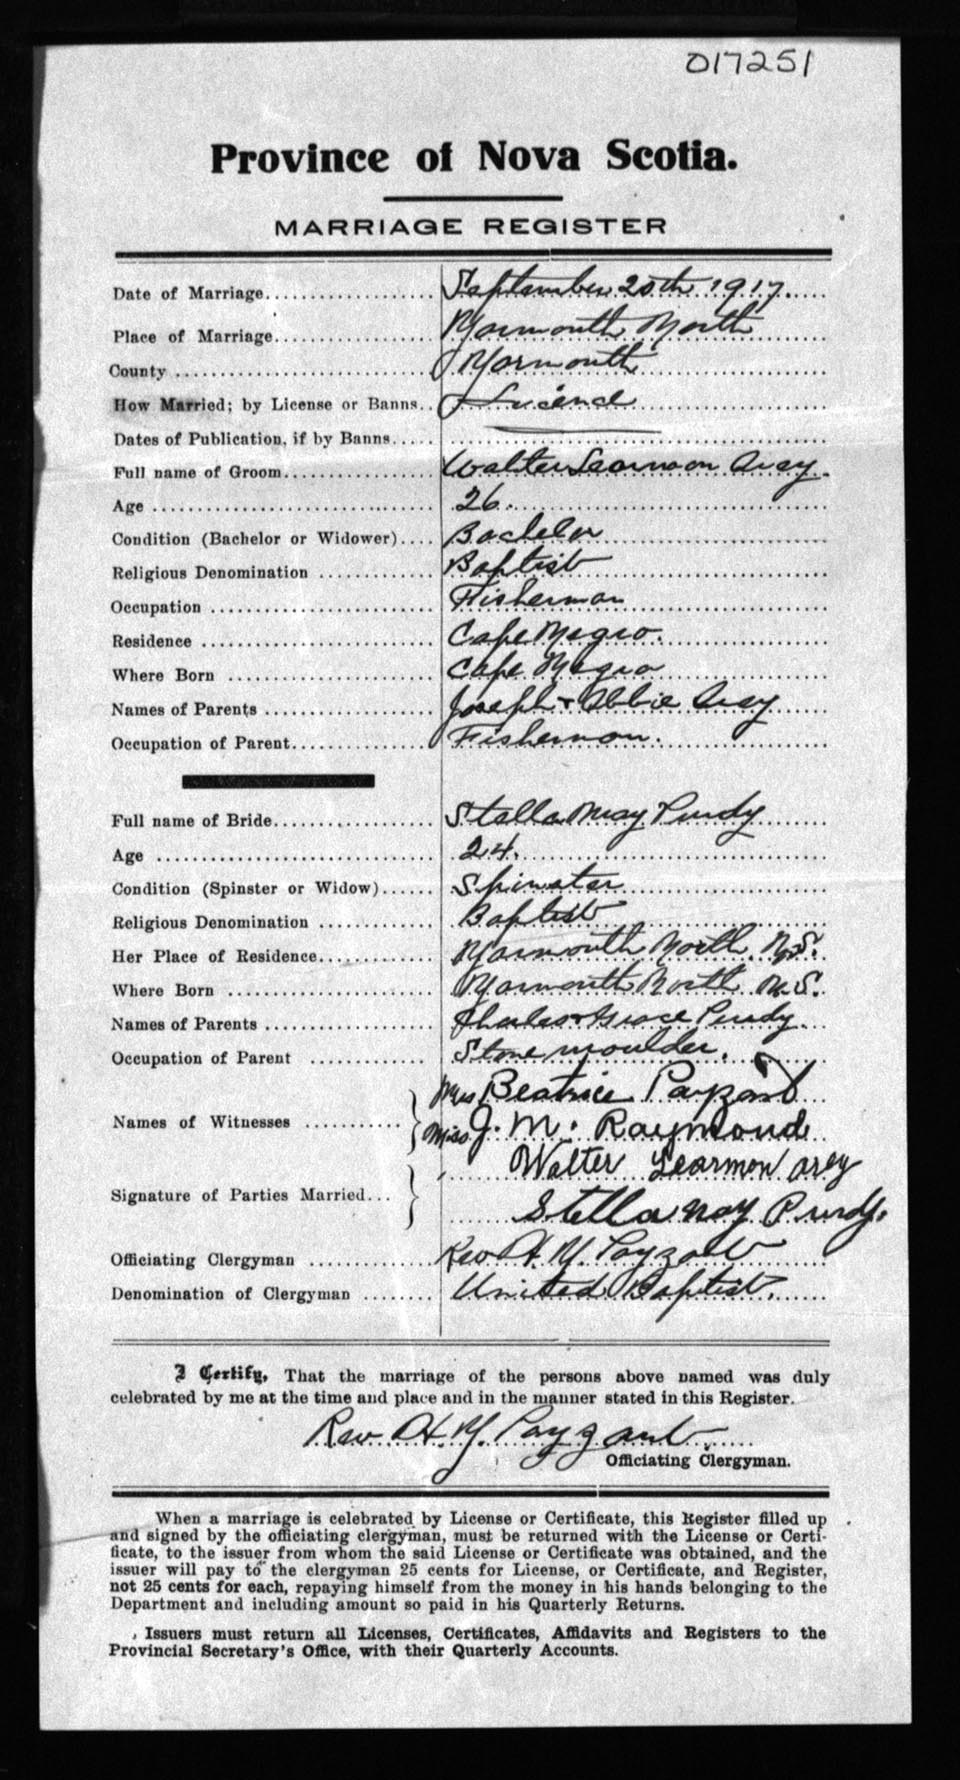 017251
Province of Nova Scotia.
MARRIAGE REGISTER
Date of Marriage.................... September 20th 1917.
Place of Marriage................... Yarmouth North
County ............................. Yarmouth
How Married; by License or Banns.. License
Dates of Publication, if by Banns.....
Full name of Groom.................. Walter Learmon Arey.
Age ................................ 26.
Condition (Bachelor or Widower).... Bachelor
Religious Denomination ............. Baptist
Occupation ......................... Fisherman
Residence .......................... Cape Negro.
Where Born ......................... Cape Negro
Names of Parents ................... Joseph & Abbie Arey
Occupation of Parent................ Fisherman.
Full name of Bride.................. Stella May Purdy
Age ................................ 24.
Condition (Spinster or Widow)...... Spinster
Religious Denomination ............. Baptist
Her Place of Residence.............. Yarmouth North N.S.
Where Born ......................... Yarmouth North N.S.
Names of Parents ................... Charles & Grace Purdy.
Occupation of Parent ............... Stove moulder.
Mrs Beatrice Payzant
Names of Witnesses ...........
Miss J. M. Raymond
Walter Learmon Arey
Signature of Parties Married...
Stella May Purdy.
Officiating Clergyman .............. Rev H. Y. Payzant
Denomination of Clergyman ........ United Baptist.
I Certify, That the marriage of the persons above named was duly
celebrated by me at the time and place and in the manner stated in this Register.
Rev H. Y. Payzant.
Officiating Clergyman.
When a marriage is celebrated by License or Certificate, this Register filled up
and signed by the officiating clergyman, must be returned with the License or Certi-
ficate, to the issuer from whom the said License or Certificate was obtained, and the
issuer will pay to the clergyman 25 cents for License, or Certificate, and Register,
not 25 cents for each, repaying himself from the money in his hands belonging to the
Department and including amount so paid in his Quarterly Returns.
Issuers must return all Licenses, Certificates, Affidavits and Registers to the
Provincial Secretary's Office, with their Quarterly Accounts.